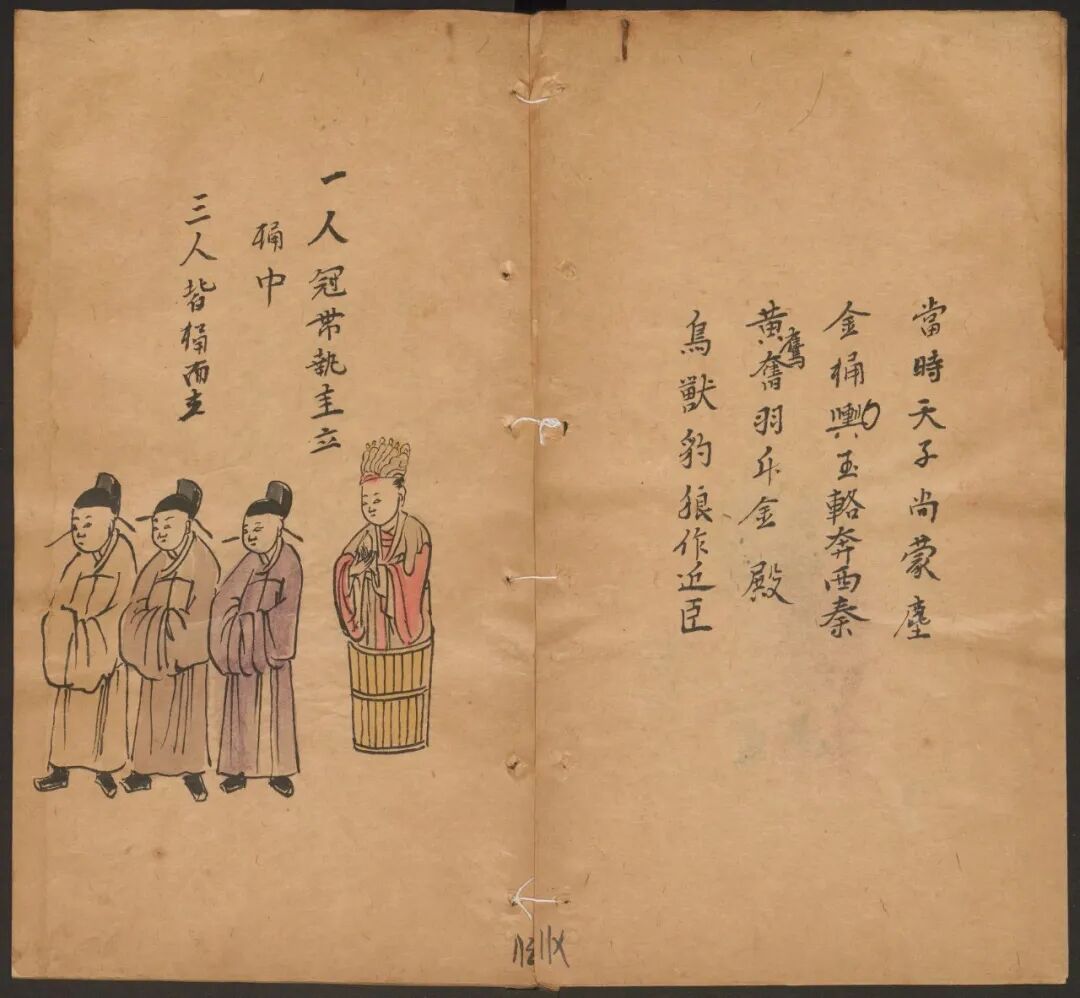 當時天子尚蒙塵
金桶輿玉輅奔西秦
黃鷹奮羽升金殿
鳥獸豹狼作近臣
一人冠帶執圭立
桶中
三人背桶而立